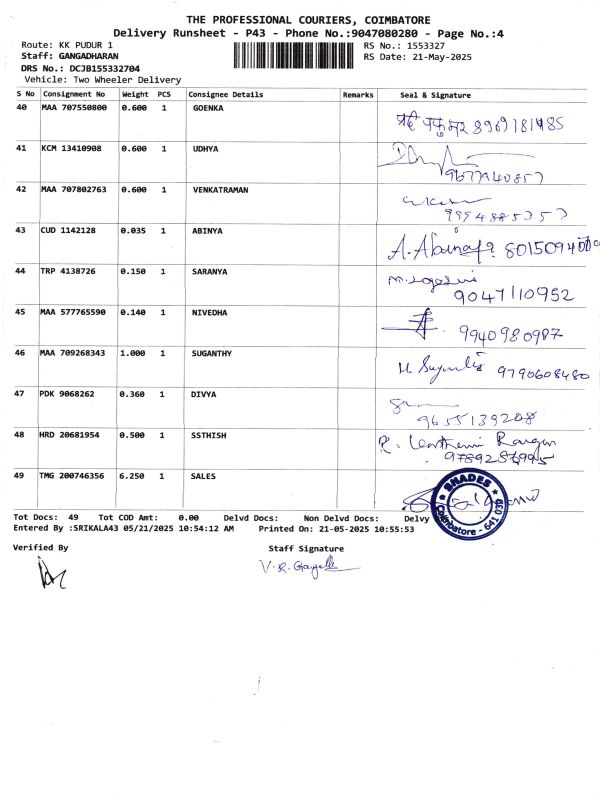 THE PROFESSIONAL COURIERS, COIMBATORE
Delivery Runsheet - P43 - Phone No.:9047080280 - Page No.:4
Route: KK PUDUR 1 RS No.: 1553327
Staff: GANGADHARAN RS Date: 21-May-2025
DRS No.: DCJB155332704
Vehicle: Two Wheeler Delivery
S No Consignment No Weight PCS Consignee Details Remarks Seal & Signature
40 MAA 707550800 0.600 1 GOENKA
41 KCM 13410908 0.600 1 UDHYA
42 MAA 707802763 0.600 1 VENKATRAMAN
43 CUD 1142128 0.035 1 ABINYA A. Abinaya
44 TRP 4138726 0.150 1 SARANYA
9047110952
45 MAA 577765590 0.140 1 NIVEDHA
9940980987
46 MAA 709268343 1.000 1 SUGANTHY 9790608480
47 PDK 9068262 0.360 1 DIVYA
9655139208
48 HRD 20681954 0.500 1 SSTHISH
49 TMG 200746356 6.250 1 SALES
SHADES
Coimbatore - 641 030
Tot Docs: 49 Tot COD Amt: 0.00 Delvd Docs: Non Delvd Docs: Delvy
Entered By :SRIKALA43 05/21/2025 10:54:12 AM Printed On: 21-05-2025 10:55:53
Verified By Staff Signature